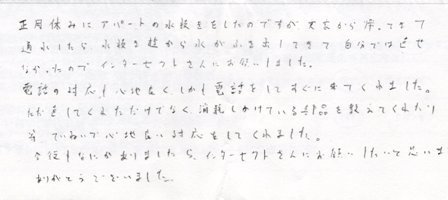 正月休みにアパートの水抜きをしたのですが 天井から滞ってきて
通水したら、水抜き栓から水がふき出してきて 自分では直せ
なかったので インターセプトさんにお願いしました。
電話の対応も心地よく、しかも電話をしてすぐに来てくれました。
ただ直してくれただけでなく 消耗しかけている部品を教えてくれたり
等、ていねいで心地良い対応をしてくれました。
今後もなにかありましたら、インターセプトさんにお願いしたいと思いま
ありがとうございました